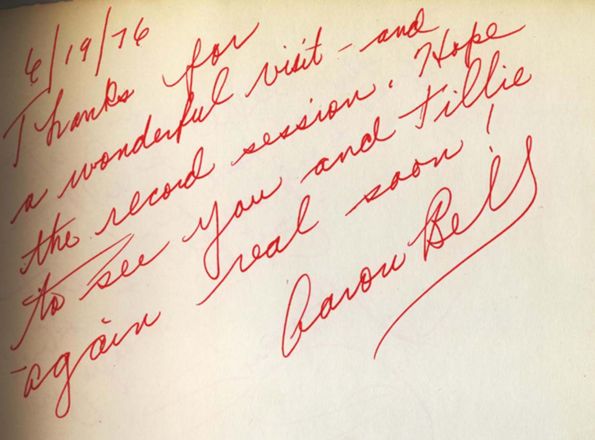 6/19/76
Thanks for
a wonderful visit - and
the record session. Hope
to see you and Tillie
again real soon!
Aaron Bell